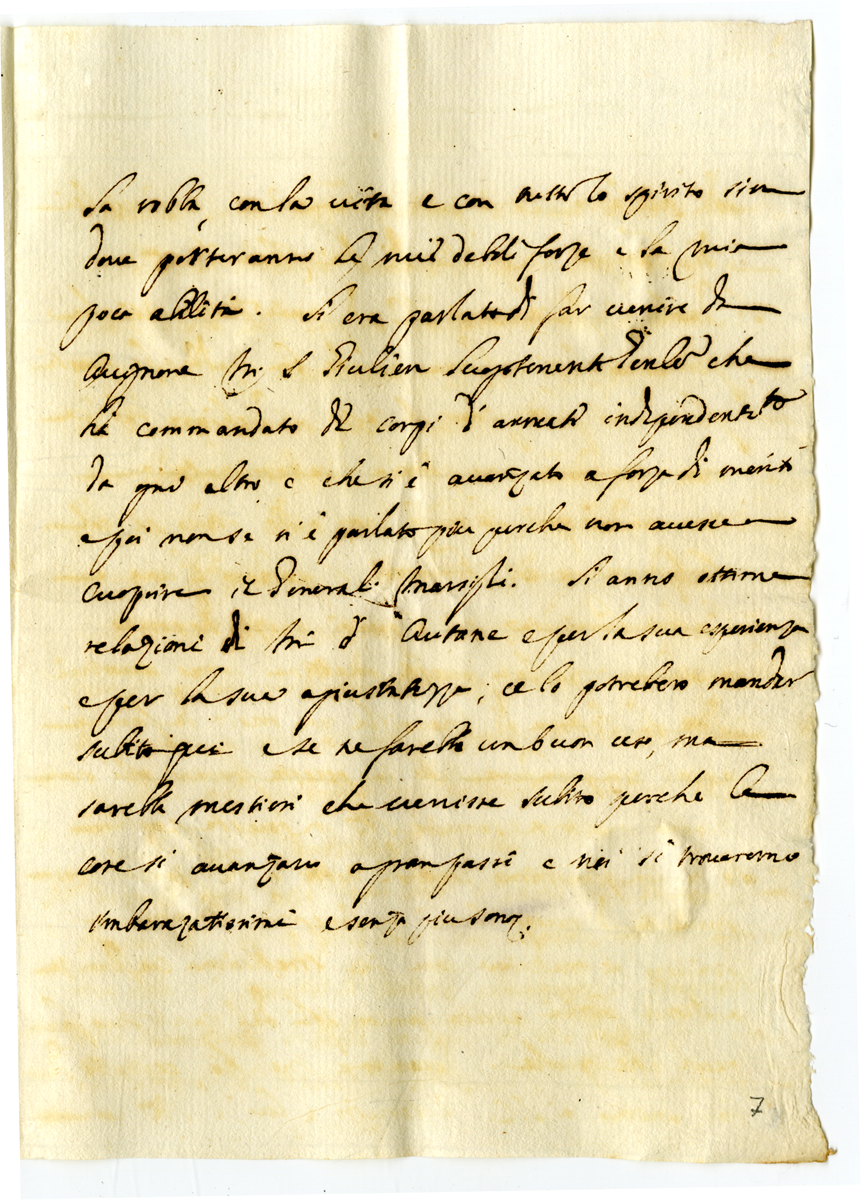 la robba, con la uita e con tutto lo spirito sin
doue porteranno le mie deboli forze e la mia
poca abilità. Si era parlato di far uenire da
Auignone Mr S Giulien Luogotenente Genle che
hà commandato de corpi d'armata independente
da gni altro e che si è auanzato a forza di meriti
e poi non se n'è parlato piu perche non auesse a
cuoprire il Generale Marsigli. Si anno ottime
relazioni di Mr d'Autane e per la sua esperienza
e per la sua agiustatezza, ce lo potrebero mandar
subito qui e se ne farebbe un buon uso, ma
sarebbe mestieri che uenisse subito perche le
cose si auanzano a gran passi e noi si trouaremo
imbarazatissimi e senza piu
7